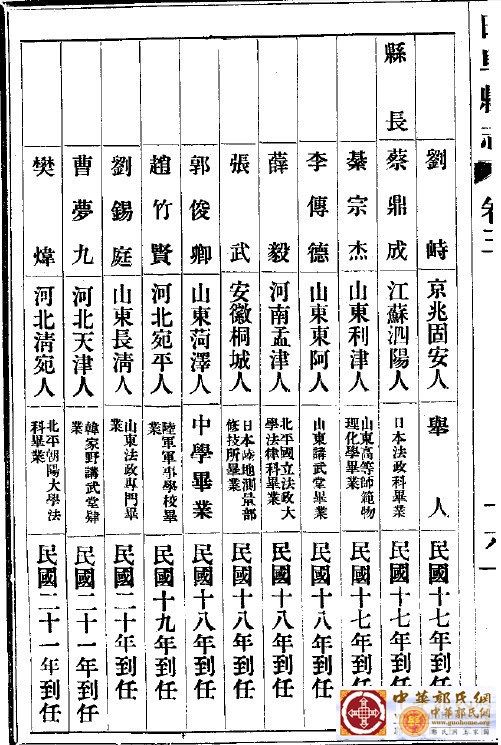 縣志 卷三
劉峙 京兆固安人 舉人 民國十七年到任
縣長 蔡鼎成 江蘇泗陽人 日本法政科畢業 民國十七年到任
綦宗杰 山東利津人 山東高等師範物理化學畢業 民國十七年到任
李傳德 山東東阿人 山東講武堂畢業 民國十八年到任
薛毅 河南孟津人 北平國立法政大學法律科畢業 民國十八年到任
張武 安徽桐城人 日本陸地測量部修技所畢業 民國十八年到任
郭俊卿 山東菏澤人 中學畢業 民國十八年到任
趙竹賢 河北宛平人 陸軍軍事學校畢業 民國十九年到任
劉錫庭 山東長淸人 山東法政專門畢業 民國二十年到任
曹夢九 河北天津人 韓家野講武堂肄業 民國二十一年到任
樊煒 河北淸宛人 北平朝陽大學法科畢業 民國二十一年到任
中華郭氏网
中華郭氏网
www.guohome.org
郭氏网上家園